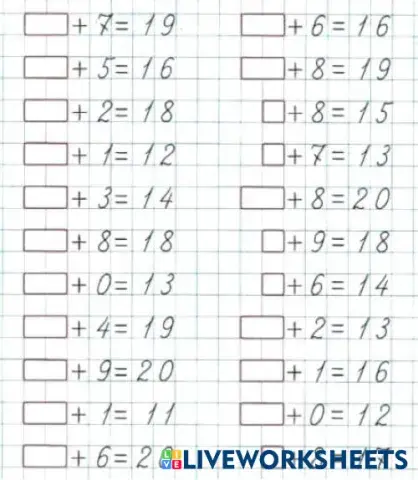 + 7 = 19
+ 5 = 16
+ 2 = 18
+ 1 = 12
+ 3 = 14
+ 8 = 18
+ 0 = 13
+ 4 = 19
+ 9 = 20
+ 1 = 11
+ 6 = 2
+ 6 = 16
+ 8 = 19
+ 8 = 15
+ 7 = 13
+ 8 = 20
+ 9 = 18
+ 6 = 14
+ 2 = 13
+ 1 = 16
+ 0 = 12
LIVEWORKSHEETS